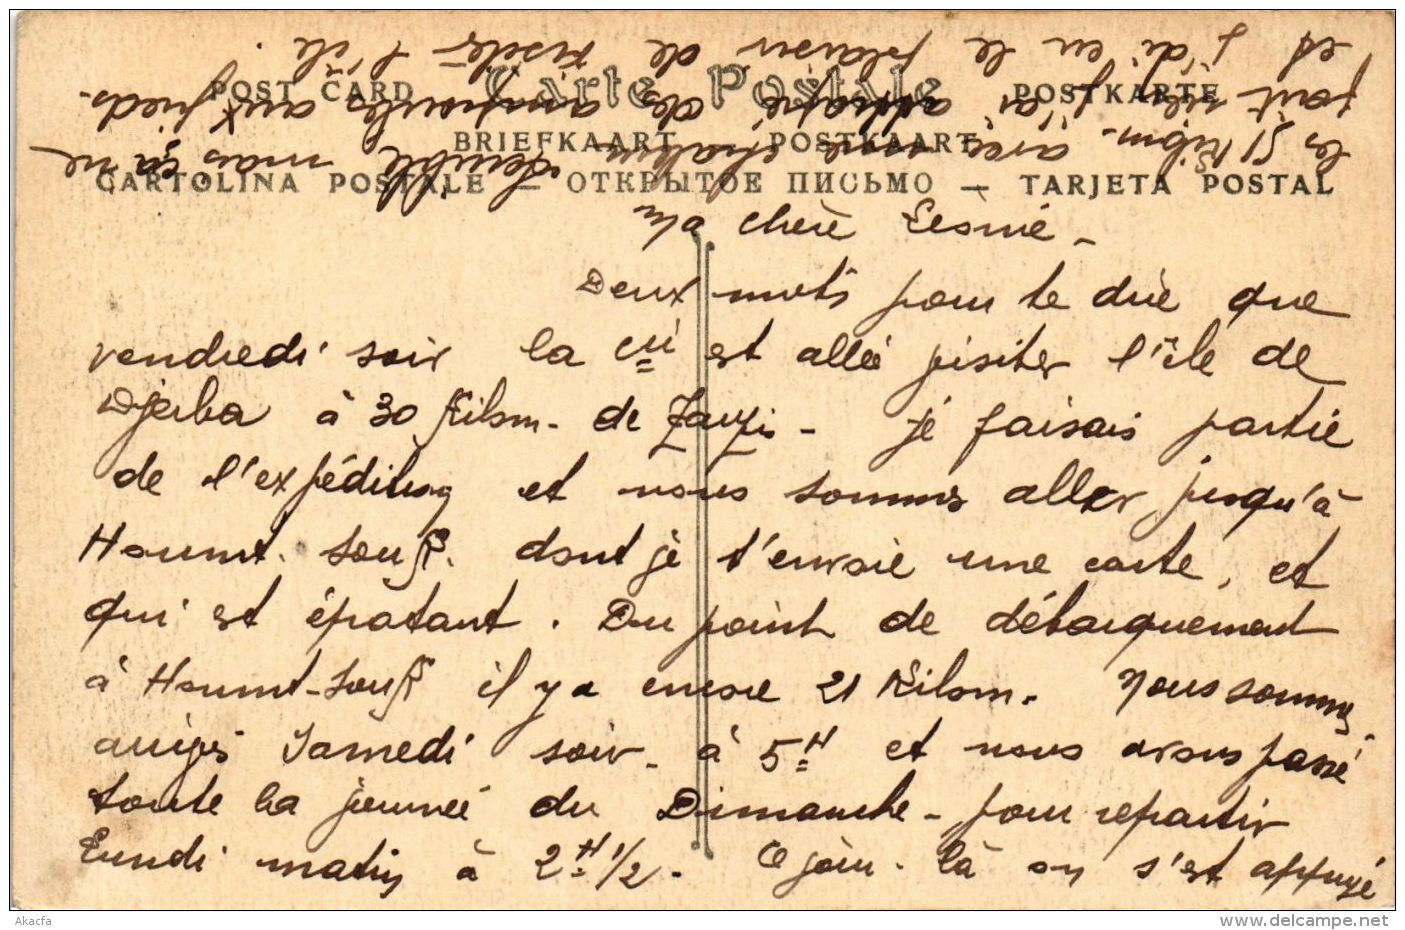 Carte Postale
POST CARD POSTKARTE
BRIEFKAART POSTKAART
CARTOLINA POSTALE — ОТКРЫТОЕ ПИСЬМО — TARJETA POSTAL
Ma chère Léonie -
Deux mots pour te dire que
vendredi soir la Cie est allée visiter l'île de
Djerba à 30 Kilom. de Zarzis - je faisais partie
de l'expédition et nous sommes aller jusqu'à
Houmt-Souk. dont je t'envoie une carte, et
qui est épatant. Du point de débarquement
à Houmt-Souk il y a encore 21 Kilom. Nous sommes
arrivés Samedi soir à 5H et nous avons passé
toute la journée du Dimanche - pour repartir
Lundi matin à 2H 1/2. Ce jour-là on s'est appuyé
les 51 Kilom. avec mais ça ne
fait rien j'ai attrapé des ampoules aux pieds.
et j'ai eu le plaisir de visiter l'île.
Akacfa
delcampe.net